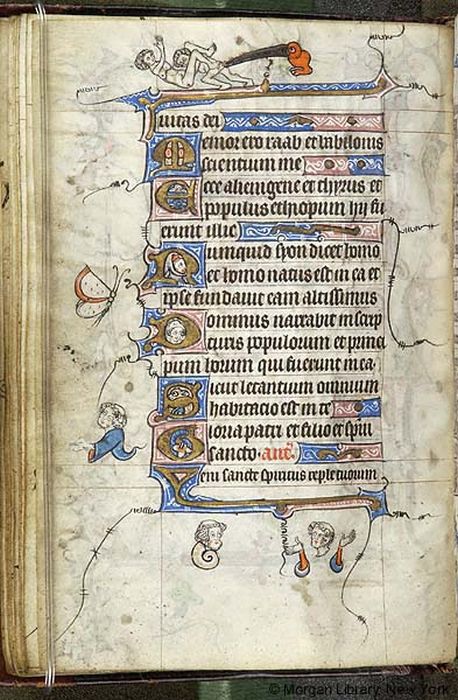 ciuitas dei
Memor ero raab et babilonis
scientium me
Ecce alienigene et thyrus et
populus ethiopum hij fu
erunt illic
Numquid syon dicet homo
et homo natus est in ea et
ipse fundauit eam altissimus
Dominus narrabit in scrip
turis populorum et princi
pum horum qui fuerunt in ea
Sicut letantium omnium
habitacio est in te
Gloria patri et filio et spiritui
sancto. ant.
Veni sancte spiritus reple tuorum
© Morgan Library, New York